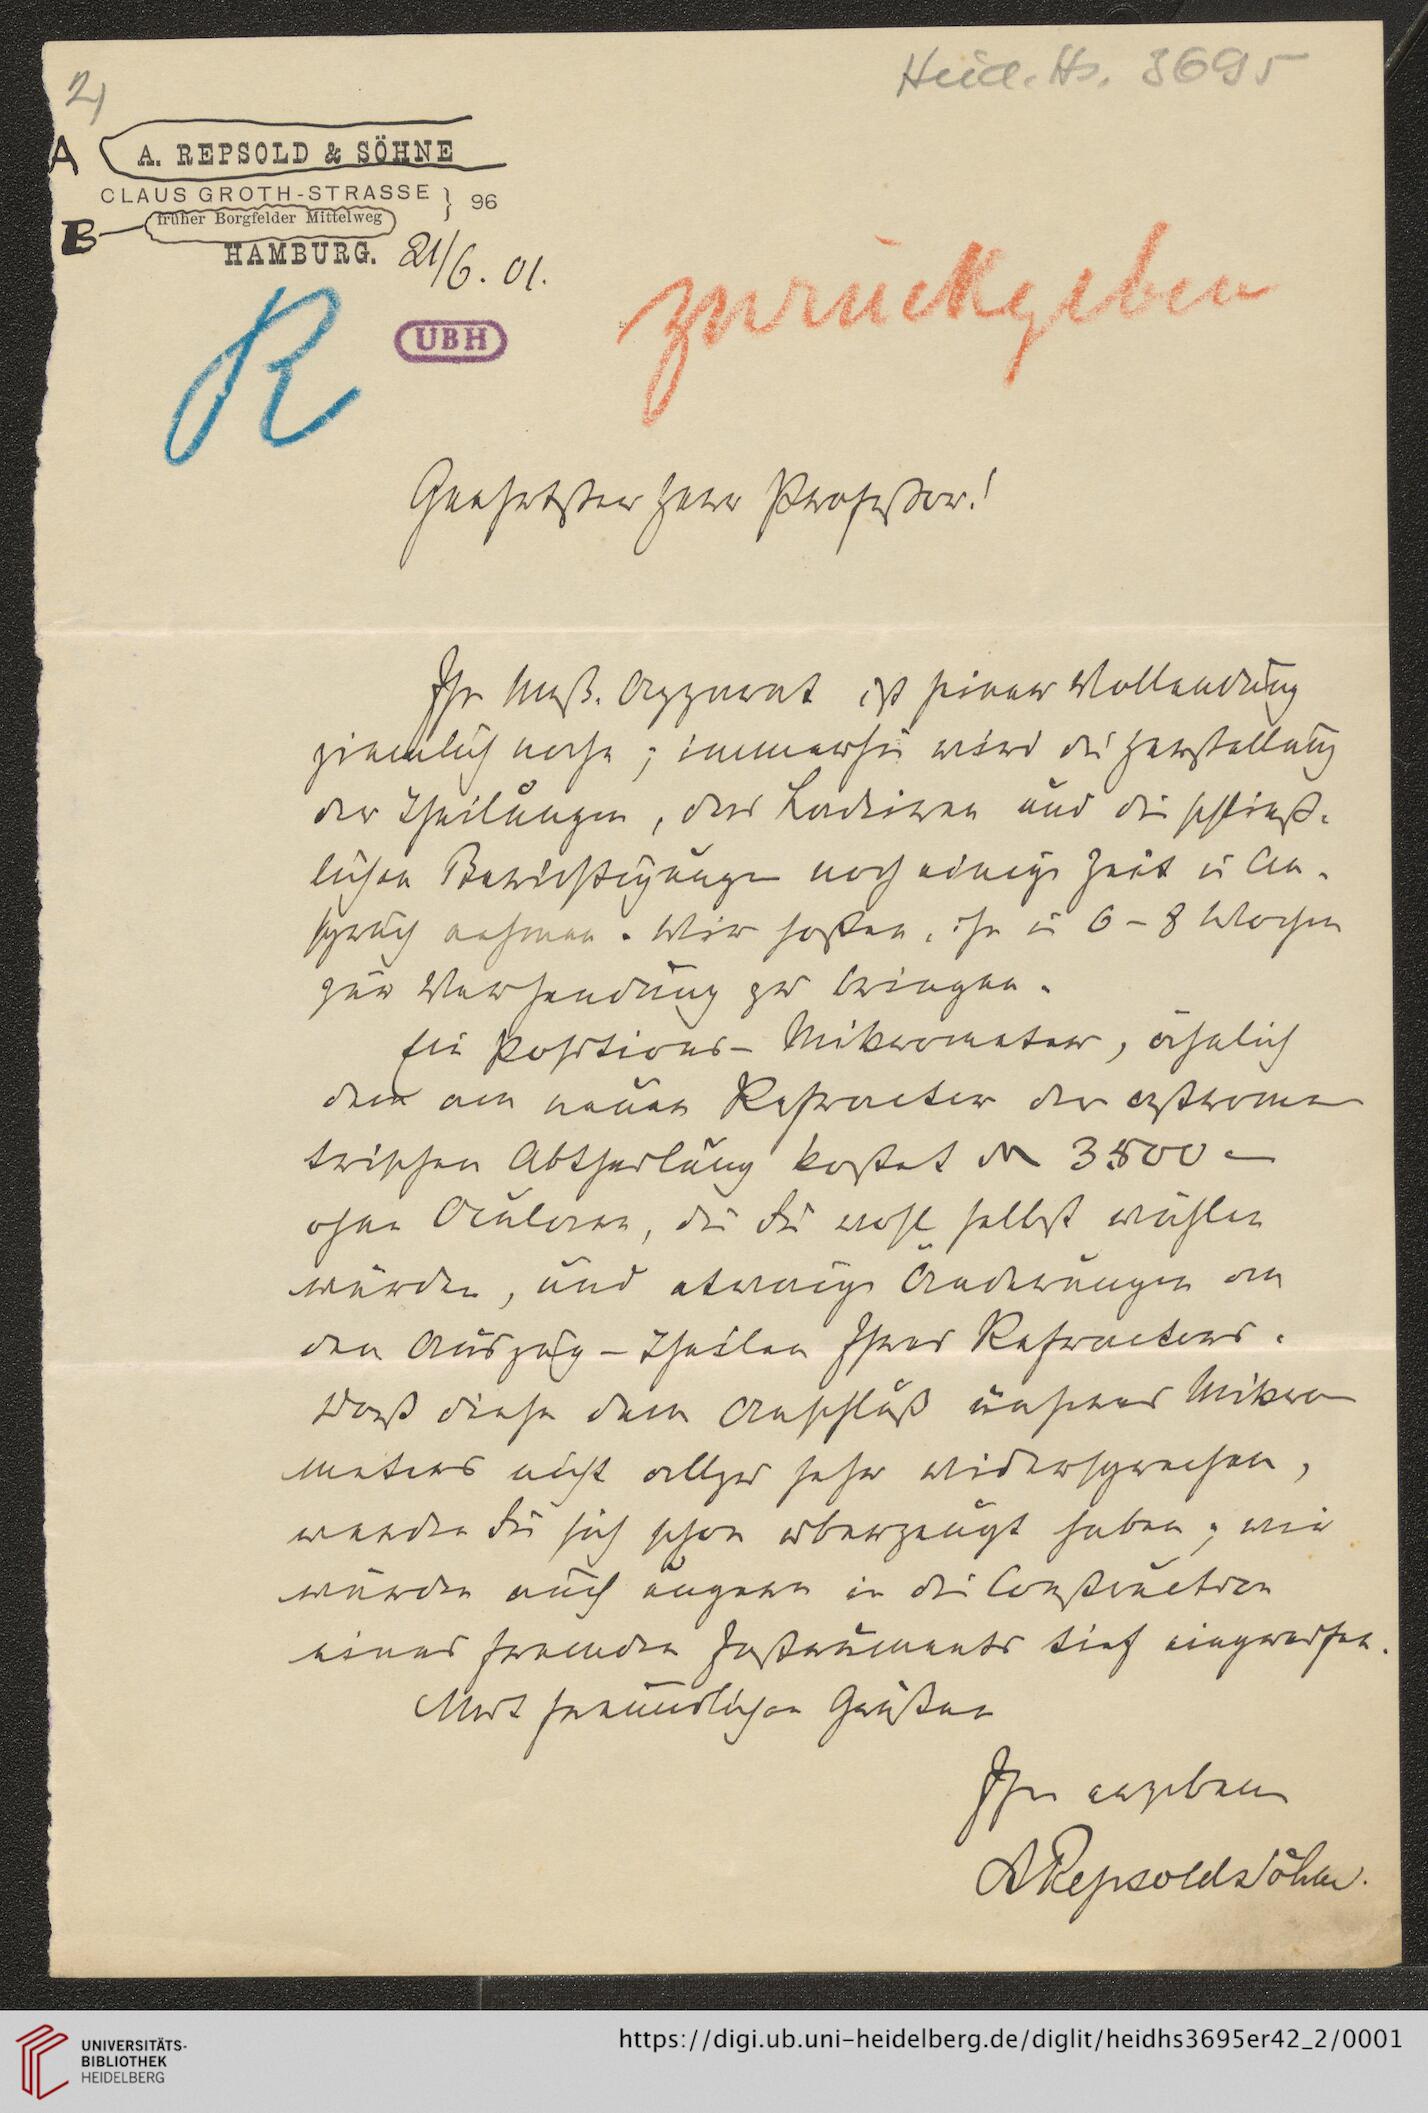 2)
Heid. Hs. 3695
A
A. REPSOLD & SÖHNE
CLAUS GROTH-STRASSE } 96
früher Borgfelder Mittelweg
B
HAMBURG. 21/6. 01.
UBH
R
zurückgeben
Geehrtester Herr Professor!
Ihr Meß-Apparat ist seiner Vollendung
ziemlich nahe; immerhin wird die Herstellung
der Theilungen, das Lackiren und die schließ-
lichen Berichtigungen noch einige Zeit in An-
spruch nehmen. Wir hoffen, ihn in 6-8 Wochen
zur Versendung zu bringen.
Ein Positions-Mikrometer, ähnlich
dem am neuen Refractor der astrome-
trischen Abtheilung kostet M 3500 —
ohne Oculare, die Sie wohl selbst wählen
würden, und etwaige Änderungen an
den Auszug-Theilen Ihres Refractors.
Daß diese dem Anschluß unseres Mikro-
meters nicht allzu sehr widersprechen,
werden Sie sich schon überzeugt haben; wir
würden auch ungern in die Construction
eines fremden Instruments tief eingreifen.
Mit freundlichen Grüßen
Ihre ergebenen
A Repsold & Söhne.
UNIVERSITÄTS-
BIBLIOTHEK
HEIDELBERG
https://digi.ub.uni-heidelberg.de/diglit/heidhs3695er42_2/0001